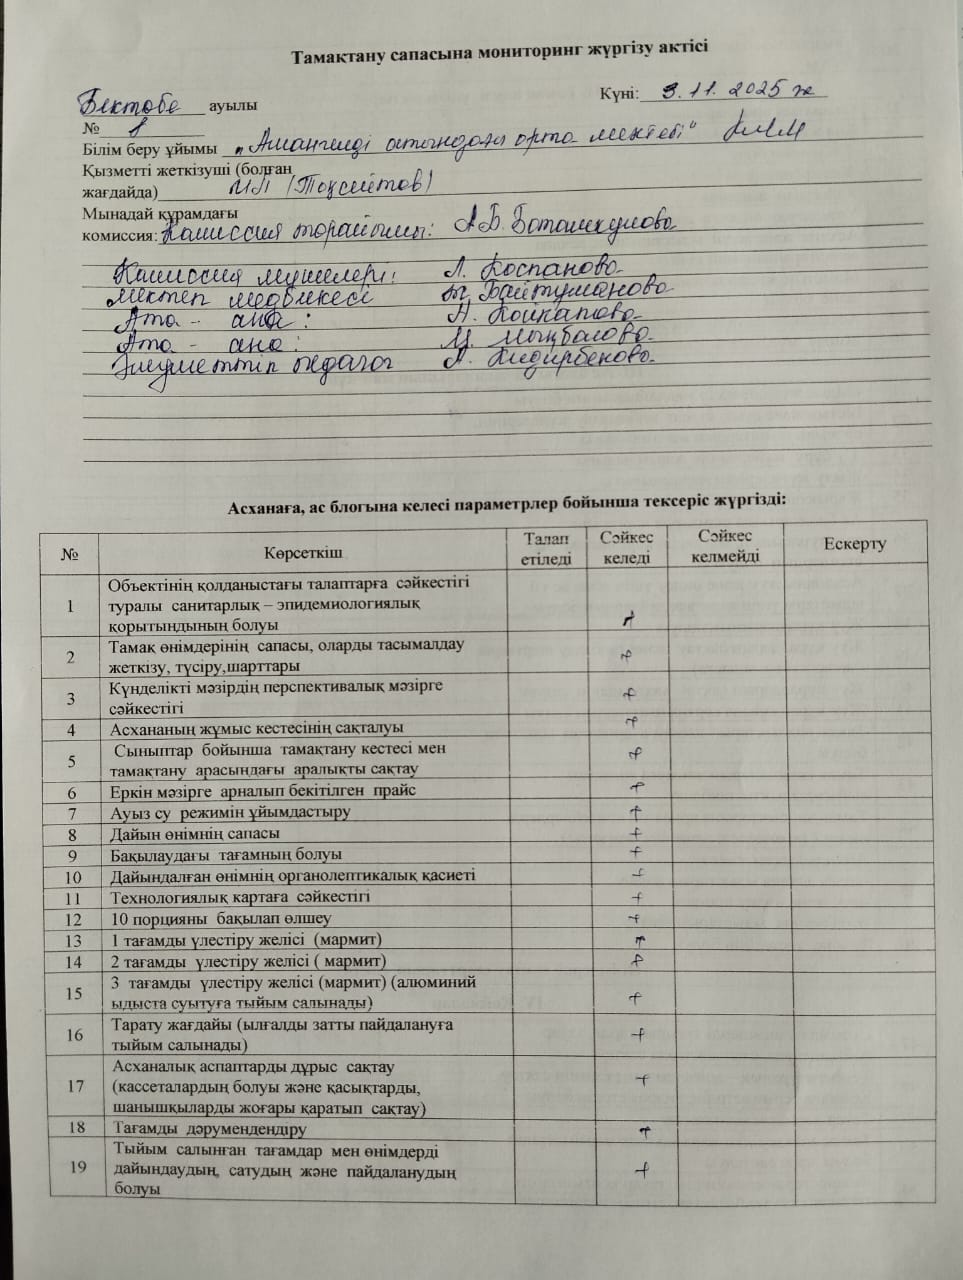 Тамақтану сапасына мониторинг жүргізу актісі
Бектөбе ауылы Күні: 3.11. 2025 ж
№ 1
Білім беру ұйымы "Амангелді атындағы орта мектебі" КММ
Қызметті жеткізуші (болған
жағдайда) ИП (Тоқсейтов)
Мынадай құрамдағы
комиссия: Камиссия төрайымы: А.Б. Ботамкулова
Камиссия мүшелері: Л. Коспанова
мектеп медбикесі Байтуманова
Ата - ана: Н.
Ата - ана: Мыңбаева
Әлеуметтік педагог А. Кидирбекова
Асханаға, ас блогына келесі параметрлер бойынша тексеріс жүргізді:
№ Көрсеткіш Талап етіледі Сәйкес келеді Сәйкес келмейді Ескерту
1 Объектінің қолданыстағы талаптарға сәйкестігі
туралы санитарлық – эпидемиологиялық
қорытындының болуы +
2 Тамақ өнімдерінің сапасы, оларды тасымалдау
жеткізу, түсіру,шарттары +
3 Күнделікті мәзірдің перспективалық мәзірге
сәйкестігі +
4 Асхананың жұмыс кестесінің сақталуы +
5 Сыныптар бойынша тамақтану кестесі мен
тамақтану арасындағы аралықты сақтау +
6 Еркін мәзірге арналып бекітілген прайс +
7 Ауыз су режимін ұйымдастыру +
8 Дайын өнімнің сапасы +
9 Бақылаудағы тағамның болуы +
10 Дайындалған өнімнің органолептикалық қасиеті +
11 Технологиялық картаға сәйкестігі +
12 10 порцияны бақылап өлшеу +
13 1 тағамды үлестіру желісі (мармит) +
14 2 тағамды үлестіру желісі ( мармит) +
15 3 тағамды үлестіру желісі (мармит) (алюминий
ыдыста суытуға тыйым салынады) +
16 Тарату жағдайы (ылғалды затты пайдалануға
тыйым салынады) +
17 Асханалық аспаптарды дұрыс сақтау
(кассеталардың болуы және қасықтарды,
шанышқыларды жоғары қаратып сақтау) +
18 Тағамды дәрумендендіру +
19 Тыйым салынған тағамдар мен өнімдерді
дайындаудың, сатудың және пайдаланудың
болуы +